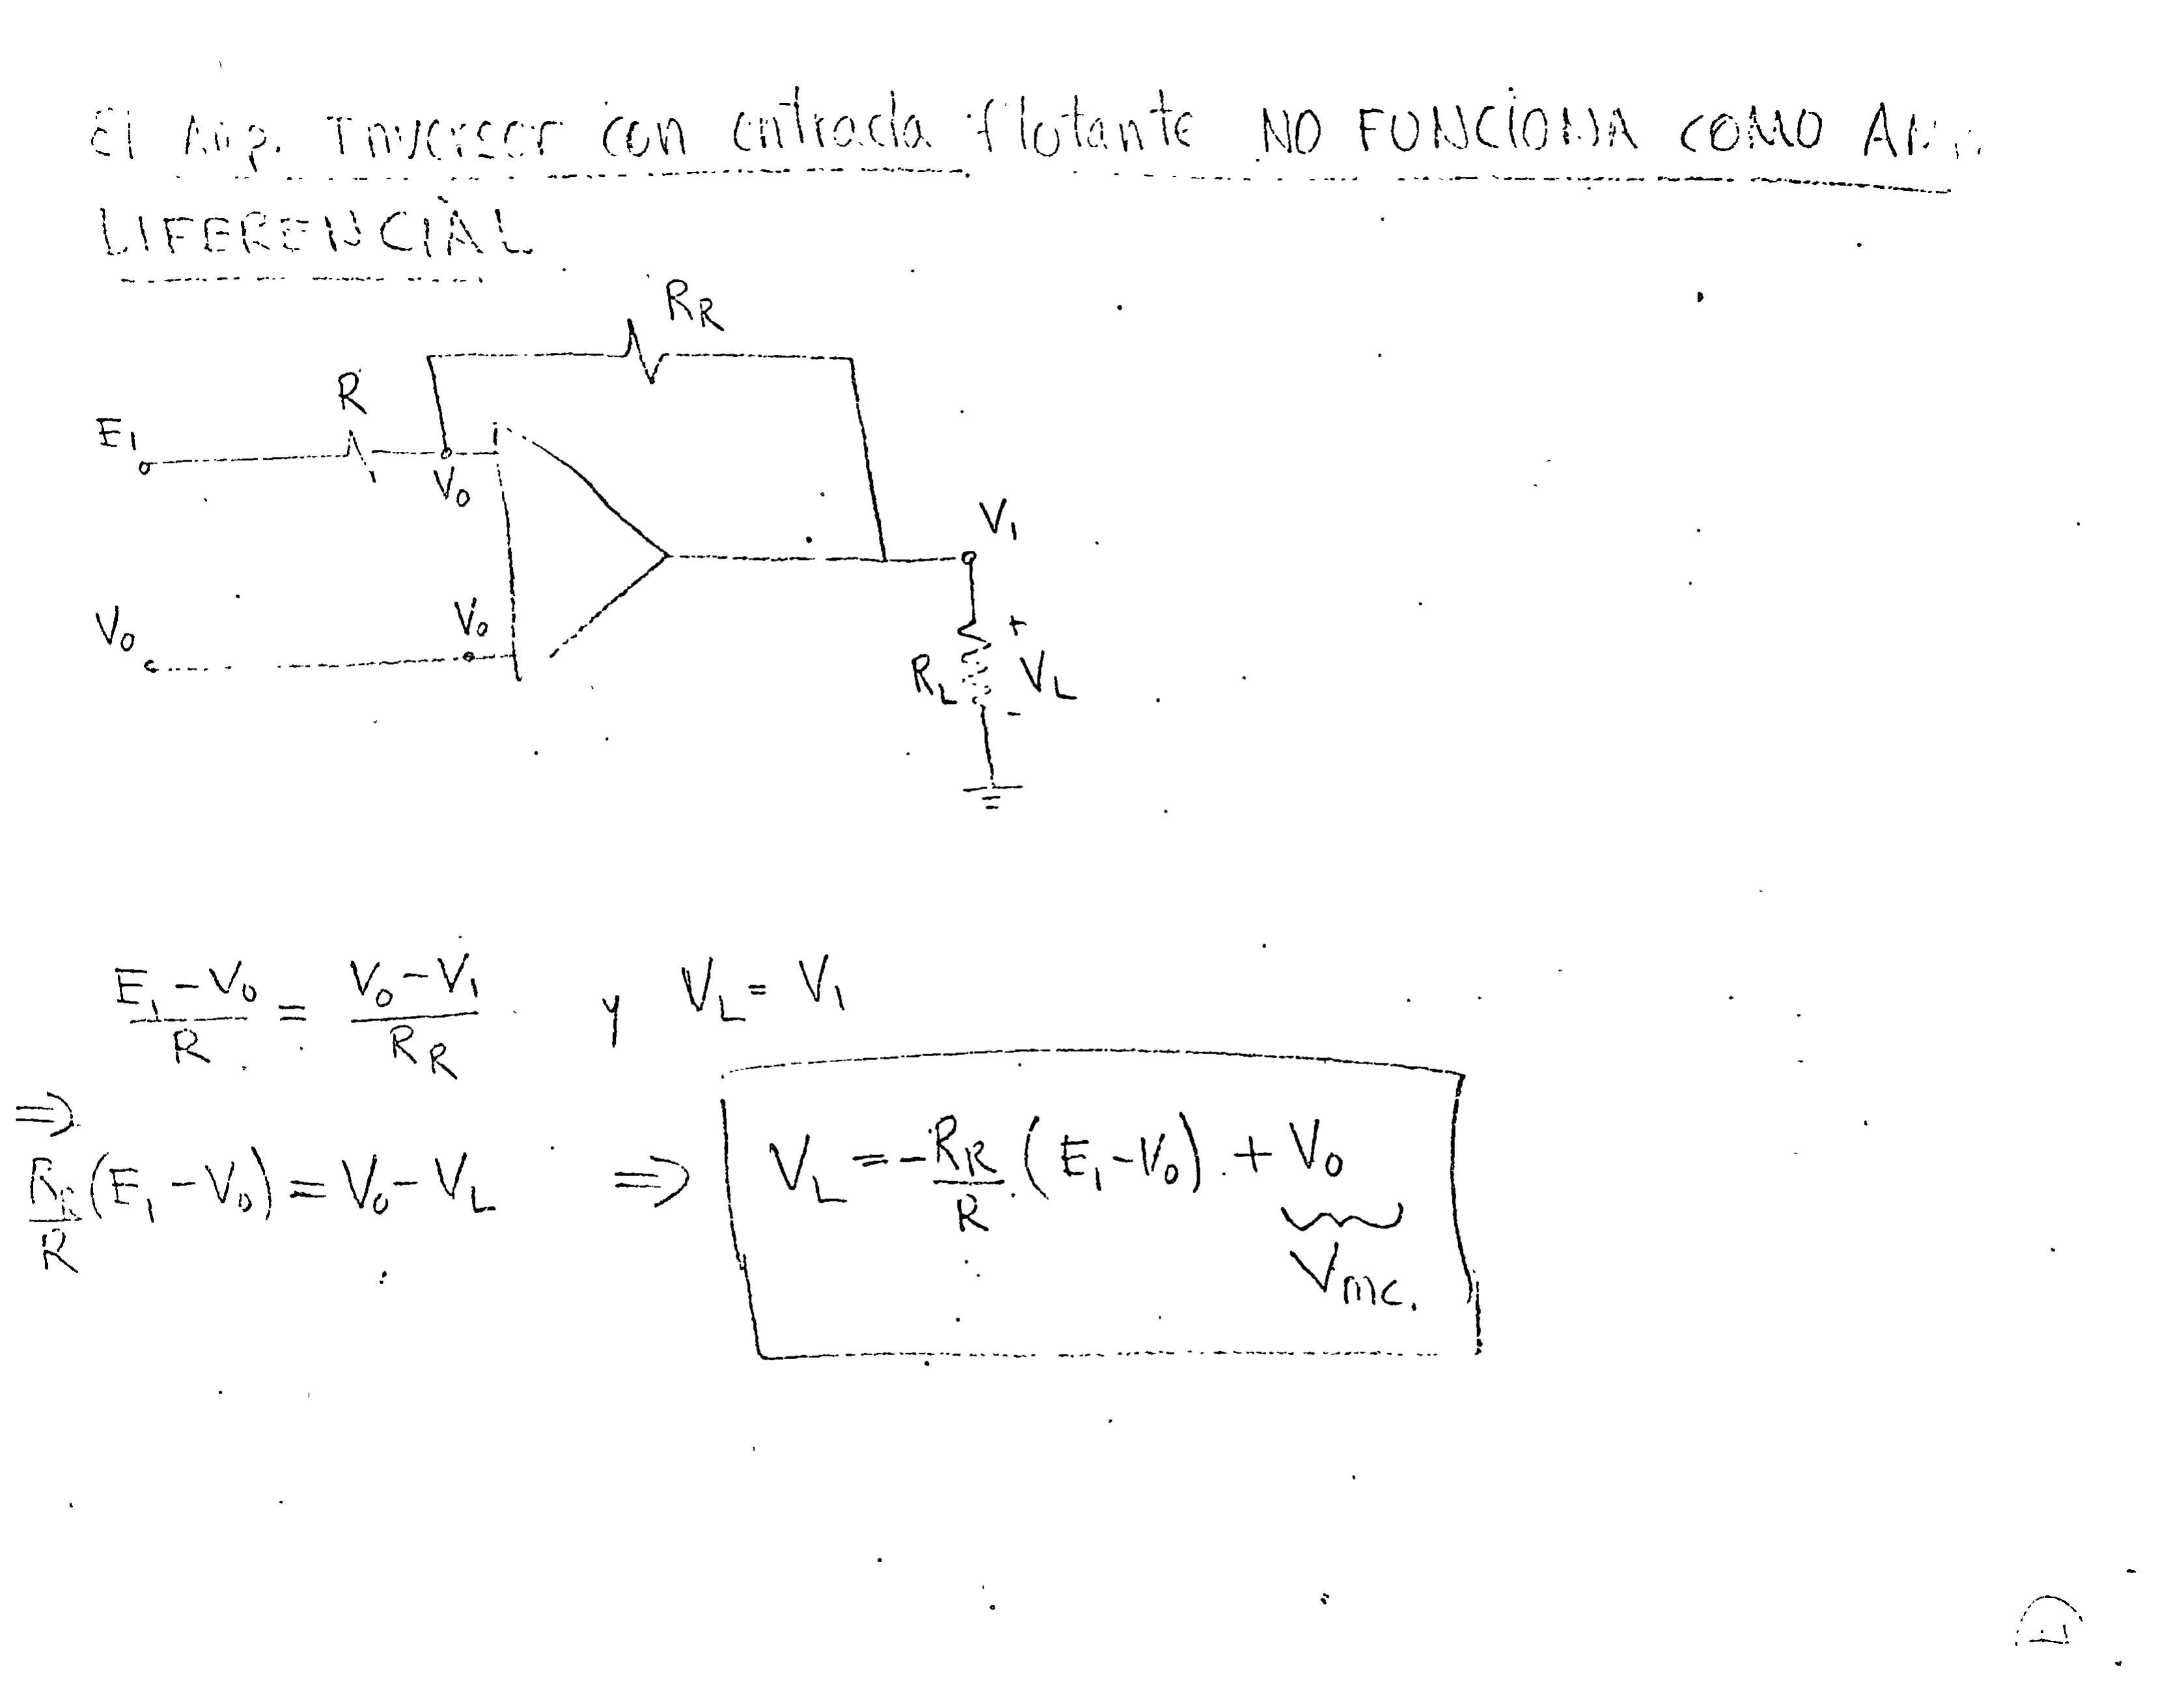 El Amp. Inversor con entrada flotante NO FUNCIONA COMO AMP.
DIFERENCIAL
R_R
R
E_1
V_0
V_1
V_0
V_0
+
R_L V_L
-
(E_1 - V_0)/R = (V_0 - V_1)/R_R y V_L = V_1
⇒
R_R/R (E_1 - V_0) = V_0 - V_L ⇒ V_L = -R_R/R (E_1 - V_0) + V_0
V_mc.